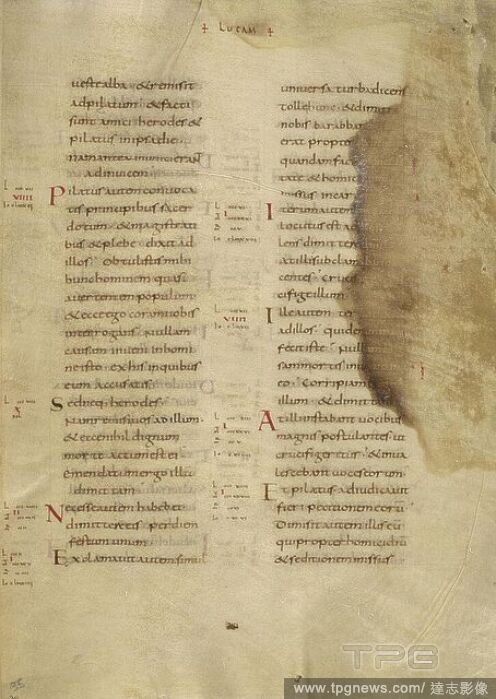 LUCAM
veste alba & remisit
ad pilatum & facti
sunt amici herodes &
pilatus in ipsa die
nam antea inimici erant
ad invicem
Pilatus autem convoca
tis principibus sacer
dotum & magistrati
bus & plebe dixit ad
illos Obtulistis mihi
hunc hominem quasi
avertentem populum
& ecce ego coram vobis
interrogans nullam
causam inveni in homi
ne isto ex his in quibus
eum accusatis
Sed neq herodes
Nam remisi vos ad illum
& ecce nihil dignum
morte actum est ei
emendatum ergo illu
dimittam
Necesse autem habebat
dimittere eis per diem
festum unum
Exclamavit autem simul
universa turba dicens
tolle hunc & dimit
nobis barabba
erat propte
quandam fac
tate & homic
missus in car
Iterum autem
locutus est ad
lens dimitte
at illi subclam
centes cruci
cifige illum
Ille autem ter
ad illos quid e
fecit iste null
sam mortis in
eo Corripiam
illum & dimitt
At illi instabant vocibus
magnis postulantes ut
crucifigeretur & inva
lescebant voces eorum
Et pilatus adiudicavit
fieri petitionem eorū
Dimisit autem illis eū
qui propter homicidiū
& seditionem missus
TPG
www.tpgnews.com/達志影像